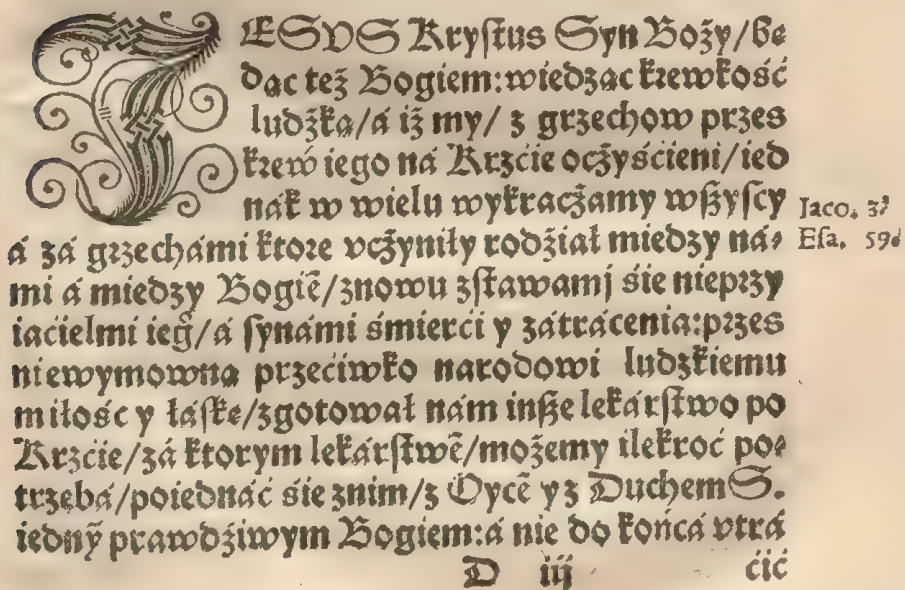 IESVS Krystus Syn Boży/be
dac też Bogiem:wiedzac krewkość
ludżka/á iż my/ z grzechow przes
krew iego ná Krzćie oczyśćieni/ied
nák w wielu wykraczamy wszyscy
Iaco. 3.
á zá grzechámi ktore vczyniły rodźiał miedzy ná-
Esa. 59.
mi á miedzy Bogiē/znowu zstawamj śie nieprzy
iaćielmi ieg̊/á synámi śmierći y zátrácenia:przes
niewymowna przećiwko narodowi ludzkiemu
miłośc y łáske/zgotował nám insze lekárstwo po
Krzćie/zá ktorym lekárstwē/możemy ilekroć po-
trzebá/poiednáć śie znim/z Oycē y z Duchem S.
iednẏ prawdźiwym Bogiem:á nie do końcá vtrá
D iij ćić